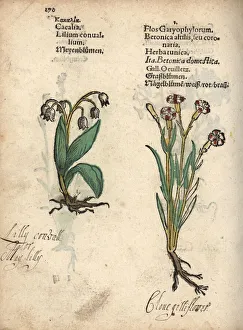 270
Cacalia.
Lilium conval-
lium.
Meyenblümen.
1.
Flos Garyophylorum.
Betonica altilis, seu coro-
naria.
Herba tunica.
Ita. Betonica domestica.
Gall. Oeulletz.
Graßblümen.
Nägelblüme/ weiß/rot/braun/
Lilly convall
or
May lilly
Clove gilliflower